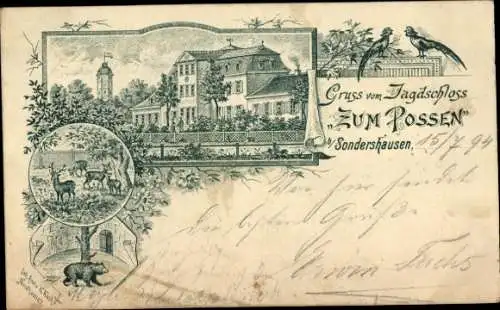 Gruss vom Jagdschloss
"ZUM POSSEN"
b/ Sondershausen,
15/7 94
Von hier sendet
die besten Grüße
Erwin Fuchs